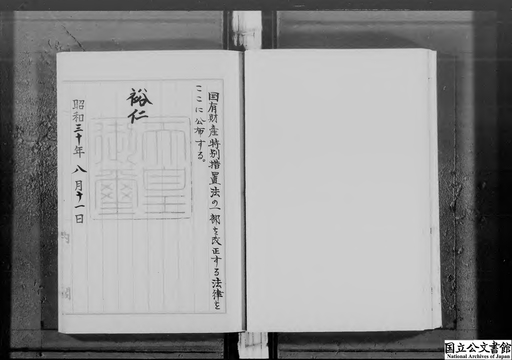 国有財産特別措置法の一部を改正する法律を
ここに公布する。
裕仁
天皇
御璽
昭和三十年八月十一日
国立公文書館
National Archives of Japan